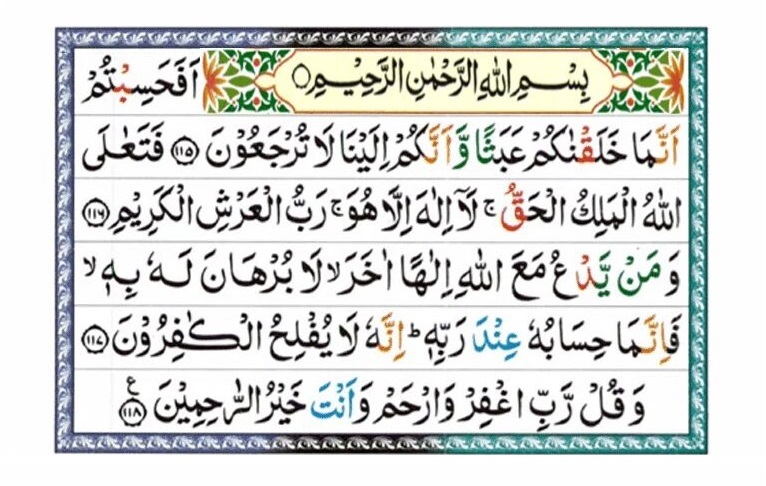 بِسْمِ اللّٰهِ الرَّحْمٰنِ الرَّحِيْمِ ○ اَفَحَسِبْتُمْ
اَنَّمَا خَلَقْنٰكُمْ عَبَثًا وَّاَنَّكُمْ اِلَيْنَا لَا تُرْجَعُوْنَ ﴿۱۱۵﴾ فَتَعٰلَى
اللّٰهُ الْمَلِكُ الْحَقُّ ۚ لَاۤ اِلٰهَ اِلَّا هُوَ ۚ رَبُّ الْعَرْشِ الْكَرِيْمِ ﴿۱۱۶﴾
وَ مَنْ يَّدْعُ مَعَ اللّٰهِ اِلٰهًا اٰخَرَ ۙ لَا بُرْهَانَ لَهٗ بِهٖ ۙ
فَاِنَّمَا حِسَابُهٗ عِنْدَ رَبِّهٖ ؕ اِنَّهٗ لَا يُفْلِحُ الْكٰفِرُوْنَ ﴿۱۱۷﴾
وَ قُلْ رَّبِّ اغْفِرْ وَارْحَمْ وَاَنْتَ خَيْرُ الرّٰحِمِيْنَ ﴿۱۱۸﴾ ع